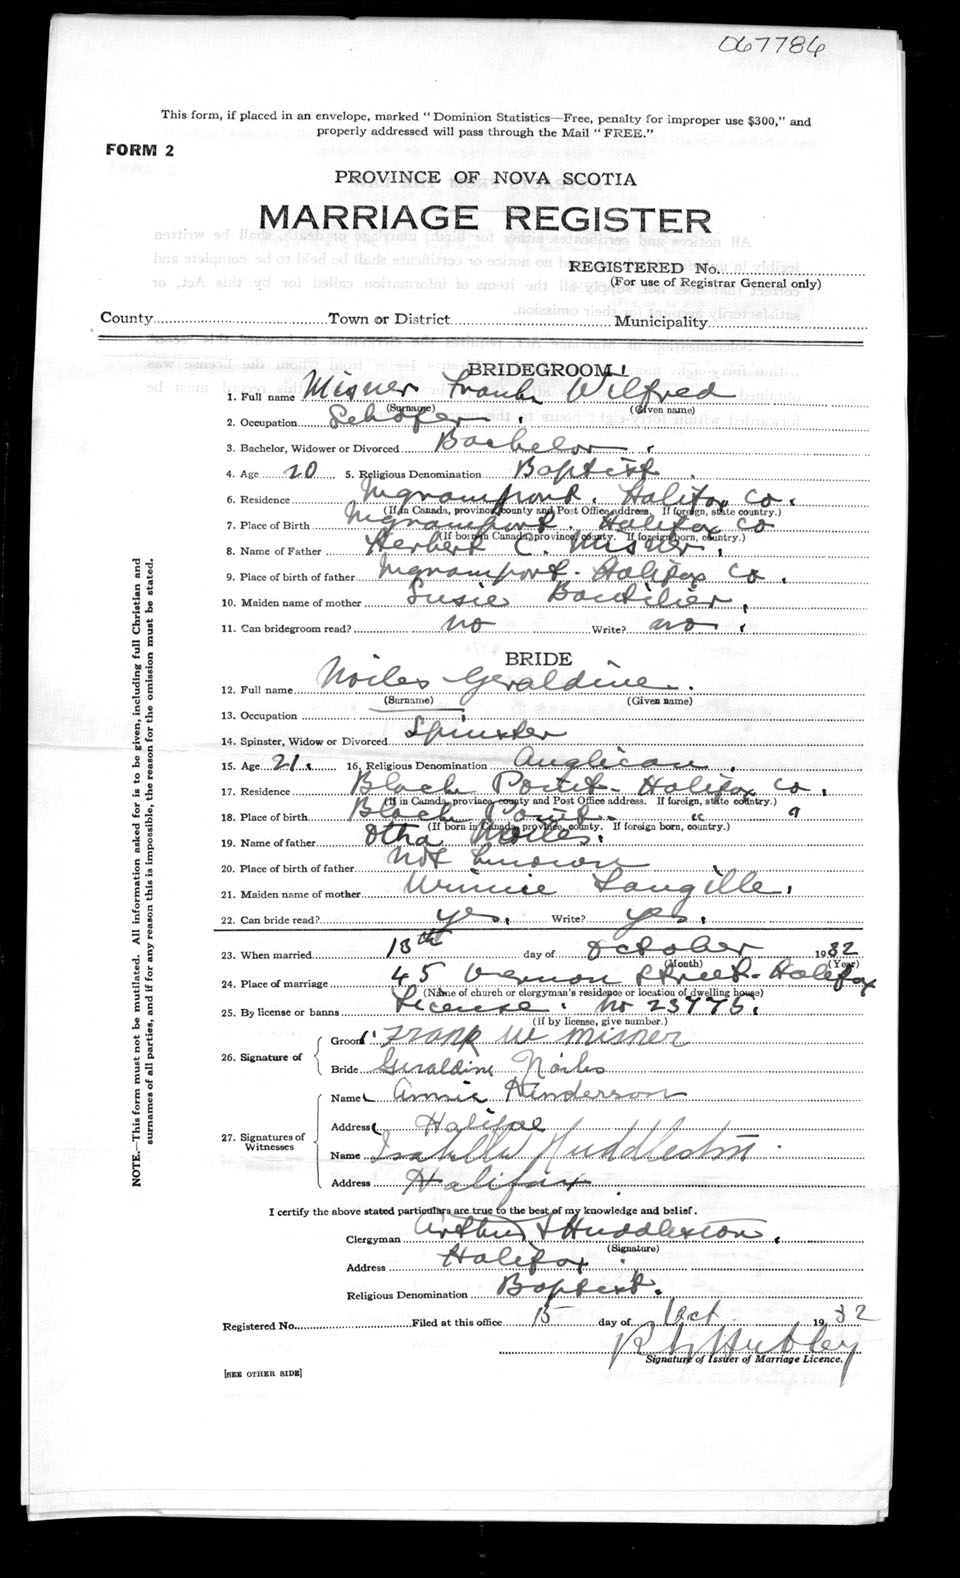 067786
This form, if placed in an envelope, marked "Dominion Statistics—Free, penalty for improper use $300," and
properly addressed will pass through the Mail "FREE."
FORM 2
PROVINCE OF NOVA SCOTIA
MARRIAGE REGISTER
REGISTERED No.
(For use of Registrar General only)
County Town or District Municipality
BRIDEGROOM
1. Full name Misner Frank Wilfred
(Surname) (Given name)
2. Occupation
3. Bachelor, Widower or Divorced Bachelor
4. Age 20 5. Religious Denomination Baptist
6. Residence Ingramport. Halifax Co.
(If in Canada, province, county and Post Office address. If foreign, state country.)
7. Place of Birth Ingramport. Halifax Co
(If born in Canada, province, county. If foreign born, country.)
8. Name of Father Herbert C. Misner
9. Place of birth of father Ingramport - Halifax Co.
10. Maiden name of mother Susie Boutilier
11. Can bridegroom read? no Write? no
BRIDE
12. Full name Noiles Geraldine
(Surname) (Given name)
13. Occupation
14. Spinster, Widow or Divorced Spinster
15. Age 21 16. Religious Denomination Anglican
17. Residence Black Point - Halifax Co.
(If in Canada, province, county and Post Office address. If foreign, state country.)
18. Place of birth Black Point
(If born in Canada, province, county. If foreign born, country.)
19. Name of father Otha Noiles
20. Place of birth of father not known
21. Maiden name of mother Winnie Langille
22. Can bride read? yes. Write? yes.
23. When married 13th day of October 1932
(Month) (Year)
24. Place of marriage 45 Vernon Street - Halifax
(Name of church or clergyman's residence or location of dwelling house)
25. By license or banns License. No 23775.
(If by license, give number.)
26. Signature of
Groom Frank W Misner
Bride Geraldine Noiles
27. Signatures of Witnesses
Name Annie Henderson
Address Halifax
Name Isabelle Huddleston
Address Halifax
I certify the above stated particulars are true to the best of my knowledge and belief.
Clergyman Arthur Huddleston
(Signature)
Address Halifax
Religious Denomination Baptist.
Registered No. Filed at this office 15 day of Oct 1932
Hubley
Signature of Issuer of Marriage Licence.
[SEE OTHER SIDE]
NOTE.—This form must not be mutilated. All information asked for is to be given, including full Christian and
surnames of all parties, and if for any reason this is impossible, the reason for the omission must be stated.